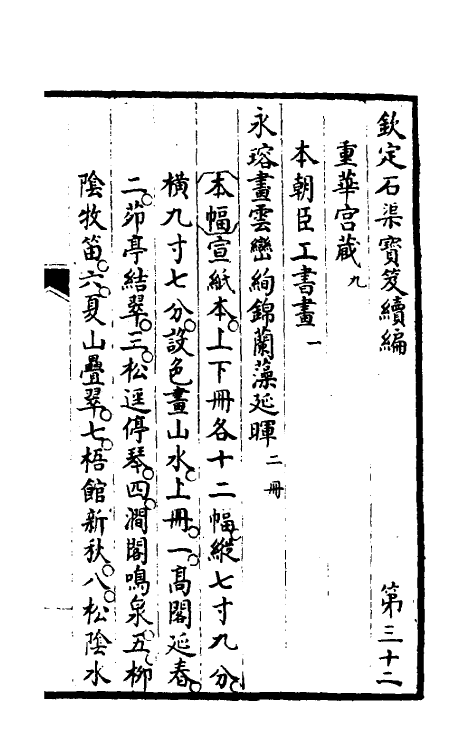 欽定石渠寶笈續編　第三十二
重華宮藏九
本朝臣工書畫一
永瑢畫雲巒絢錦蘭藻延暉二冊
本幅宣紙本。上下冊各十二幅。縱七寸九分。
橫九寸七分。設色畫山水。上冊。一高閣延春。
二。茆亭結翠。三。松逕停琴。四。澗閣鳴泉。五。柳
陰牧笛。六。夏山疊翠。七。梧館新秋。八。松陰水